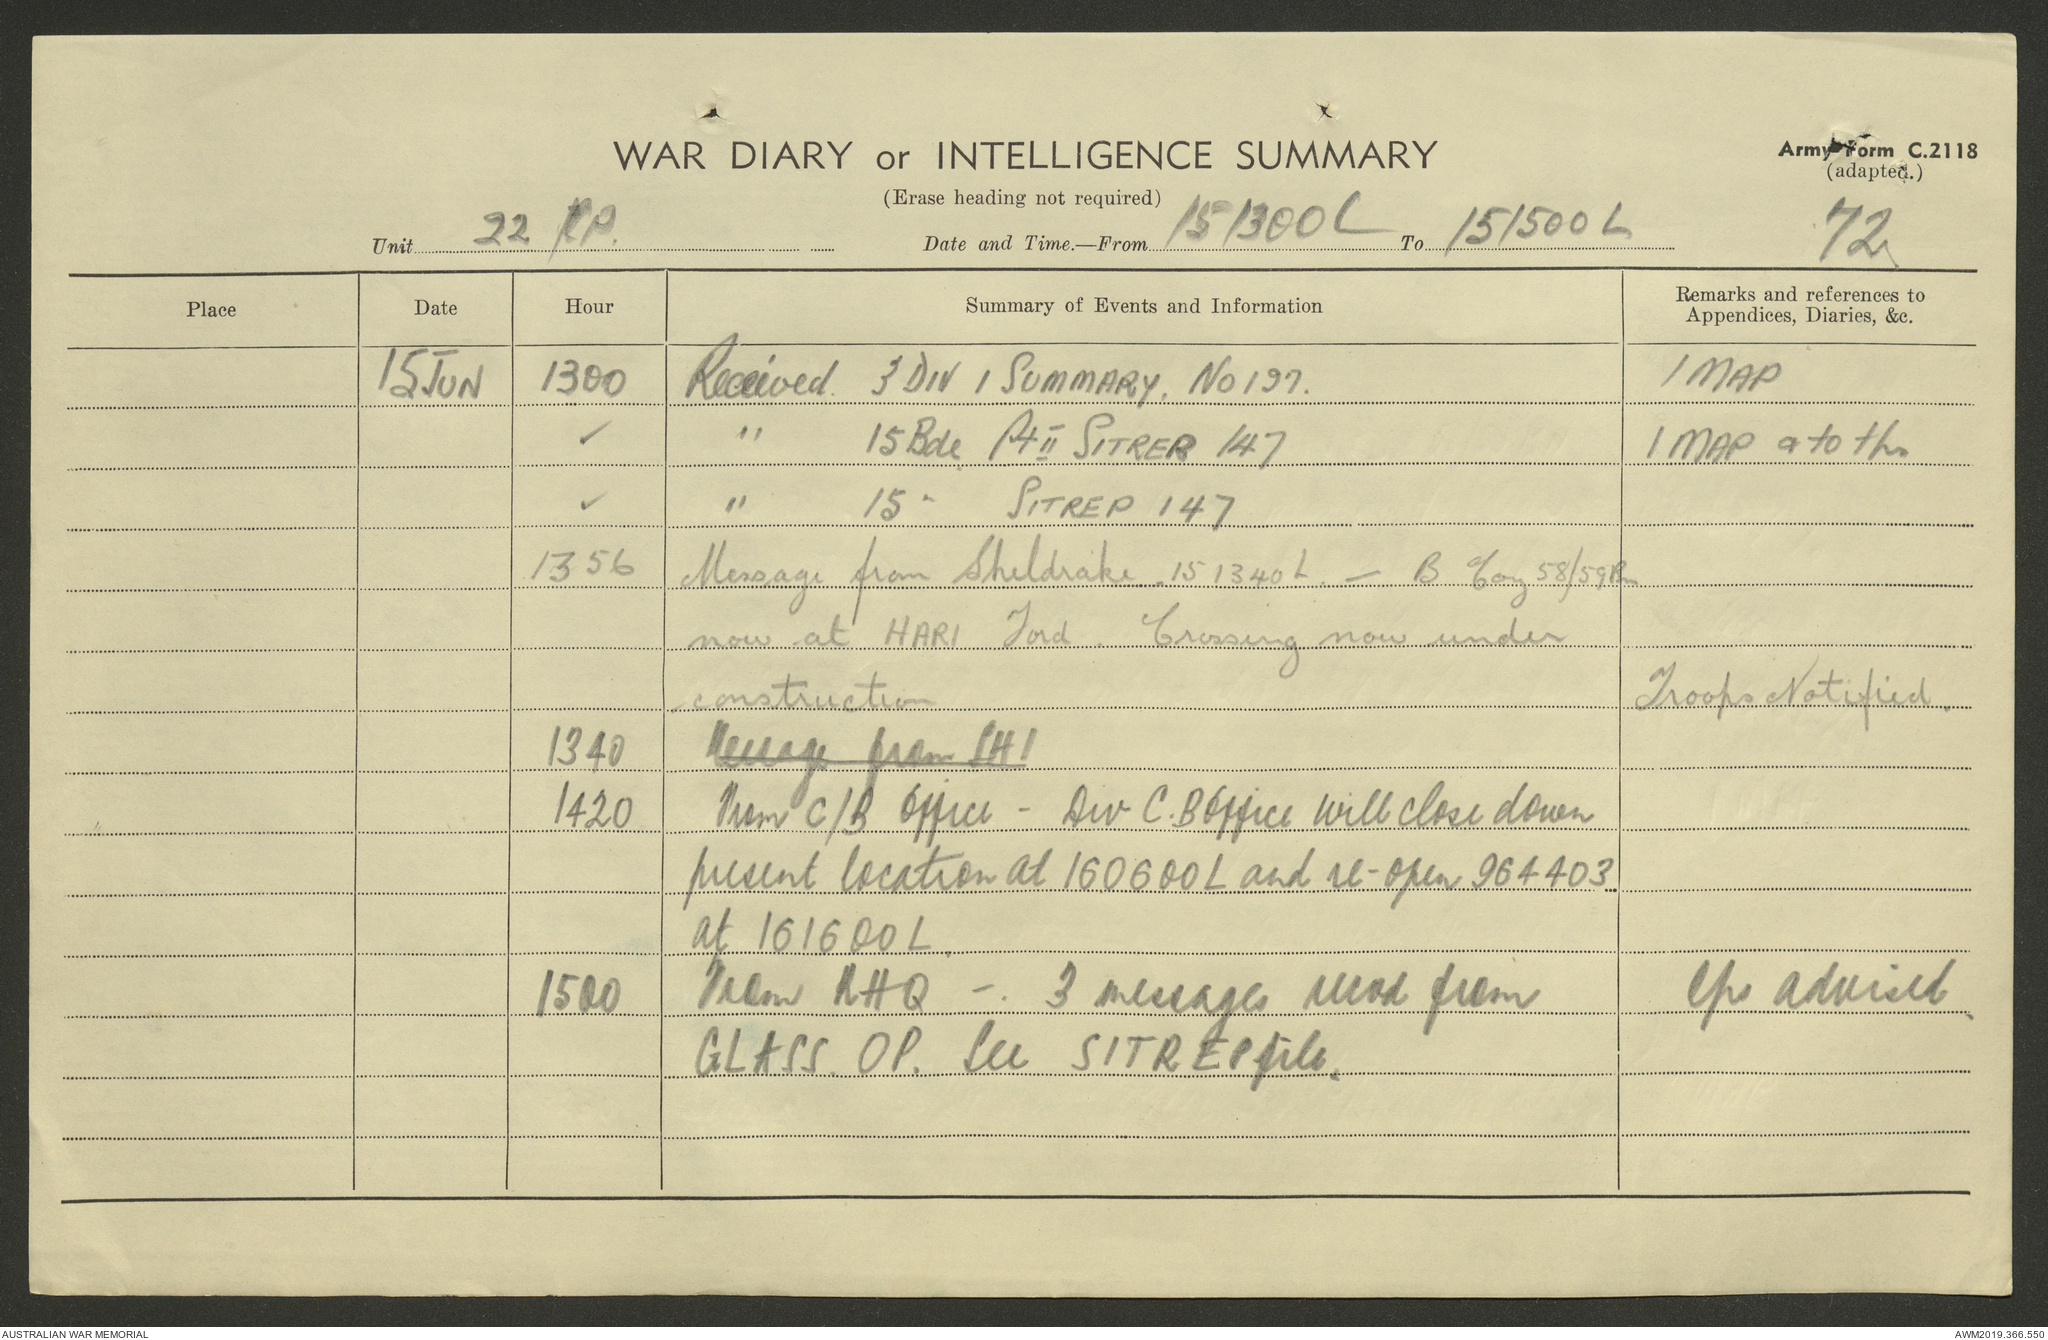 WAR DIARY or INTELLIGENCE SUMMARY
Army Form C.2118
(adapted.)
(Erase heading not required)
Unit 22 RP. Date and Time.—From 151300L To 151500L
72
Place Date Hour Summary of Events and Information Remarks and references to
Appendices, Diaries, &c.
15 JUN 1300 Received 3 DIV 1 SUMMARY. No 197. 1 MAP
✓ " 15 Bde Pt II SITREP 147 1 MAP
✓ " 15 " SITREP 147
1356 Message from Sheldrake 151340L. — B Coy 58/59 Bn
now at HARI Ford. Crossing now under
construction Troops Notified.
1340 Message from SHI
1420 From C/B Office - Div C.B Office will close down
present location at 160600L and re-open 964403
at 161600L
1500 From RHQ -. 3 messages recvd from advised
GLASS. OP. See SITREP file.
AUSTRALIAN WAR MEMORIAL
AWM2019.366.550